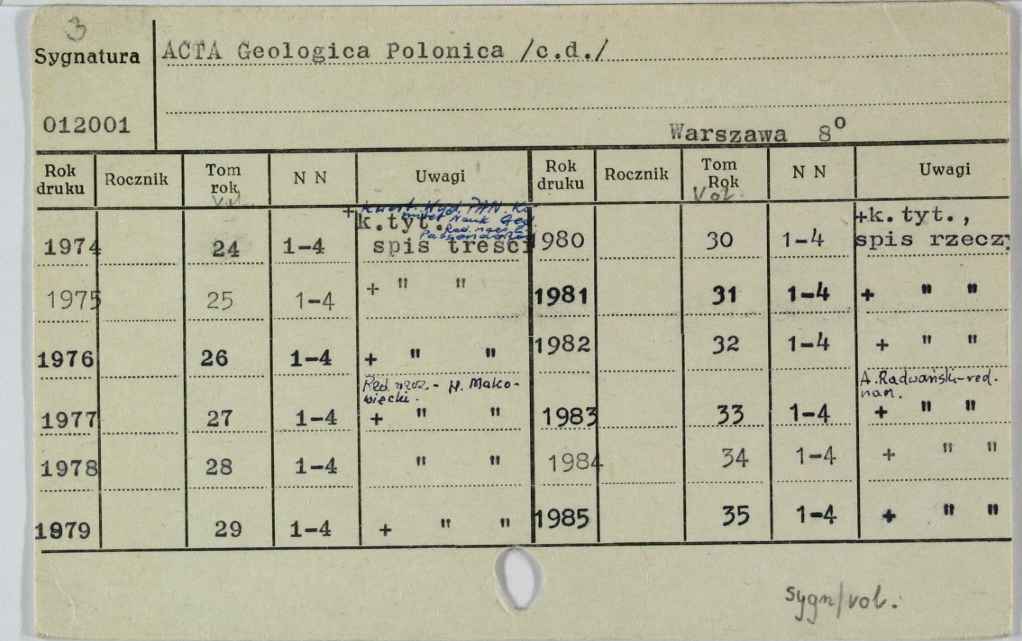 3
Sygnatura ACTA Geologica Polonica /c.d./
012001
Warszawa 8°
Rok druku Rocznik Tom rok N N Uwagi Rok druku Rocznik Tom Rok N N Uwagi
Vol.
+ Kwart. Wyd. PAN. Ko-
mitet Nauk Geol.
Red. nacz.
1974 24 1-4 k.tyt. spis treści 1980 30 1-4 +k.tyt., spis rzeczy
1975 25 1-4 + " " 1981 31 1-4 + " "
1976 26 1-4 + " " 1982 32 1-4 + " "
Red. nacz. - H. Mako-
wiecki. A. Radwański-red.
nacz.
1977 27 1-4 + " " 1983 33 1-4 + " "
1978 28 1-4 " " 1984 34 1-4 + " "
1979 29 1-4 + " " 1985 35 1-4 + " "
sygn/vol.